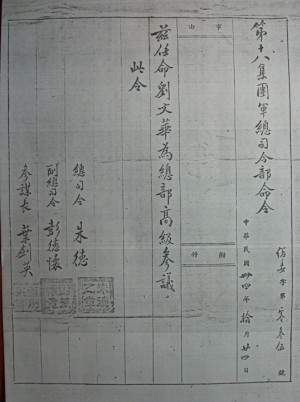 第十八集團軍總司令部命令
字第零叁伍號
中華民國卅四年拾月廿四日
事由
附件
兹任命劉文華為總部高級參議
此令
總司令 朱德
副總司令 彭德懷
參謀長 葉劍英